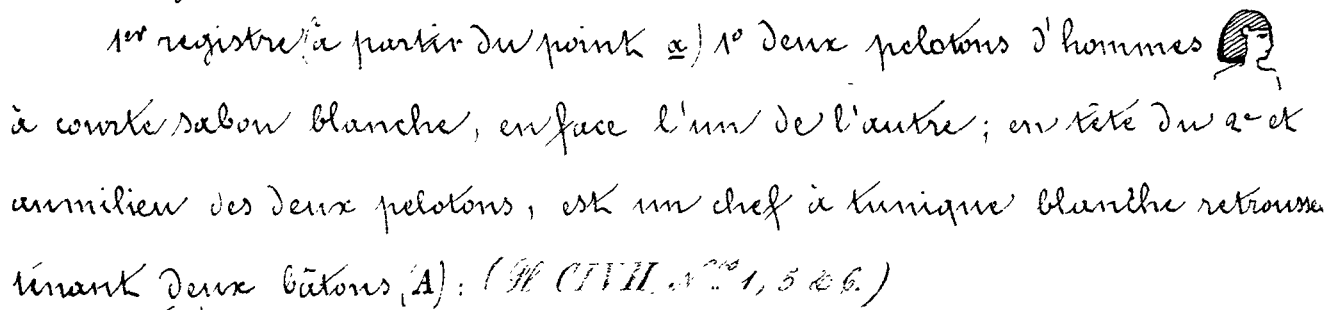 1er registre (à partir du point a) 1° deux pelotons d'hommes
à courte sabou blanche, en face l'un de l'autre; en tête du 2e et
au milieu des deux pelotons, est un chef à tunique blanche retroussée
tenant deux bâtons, (A): (Pl. CLVII. Nos 1, 5 & 6.)